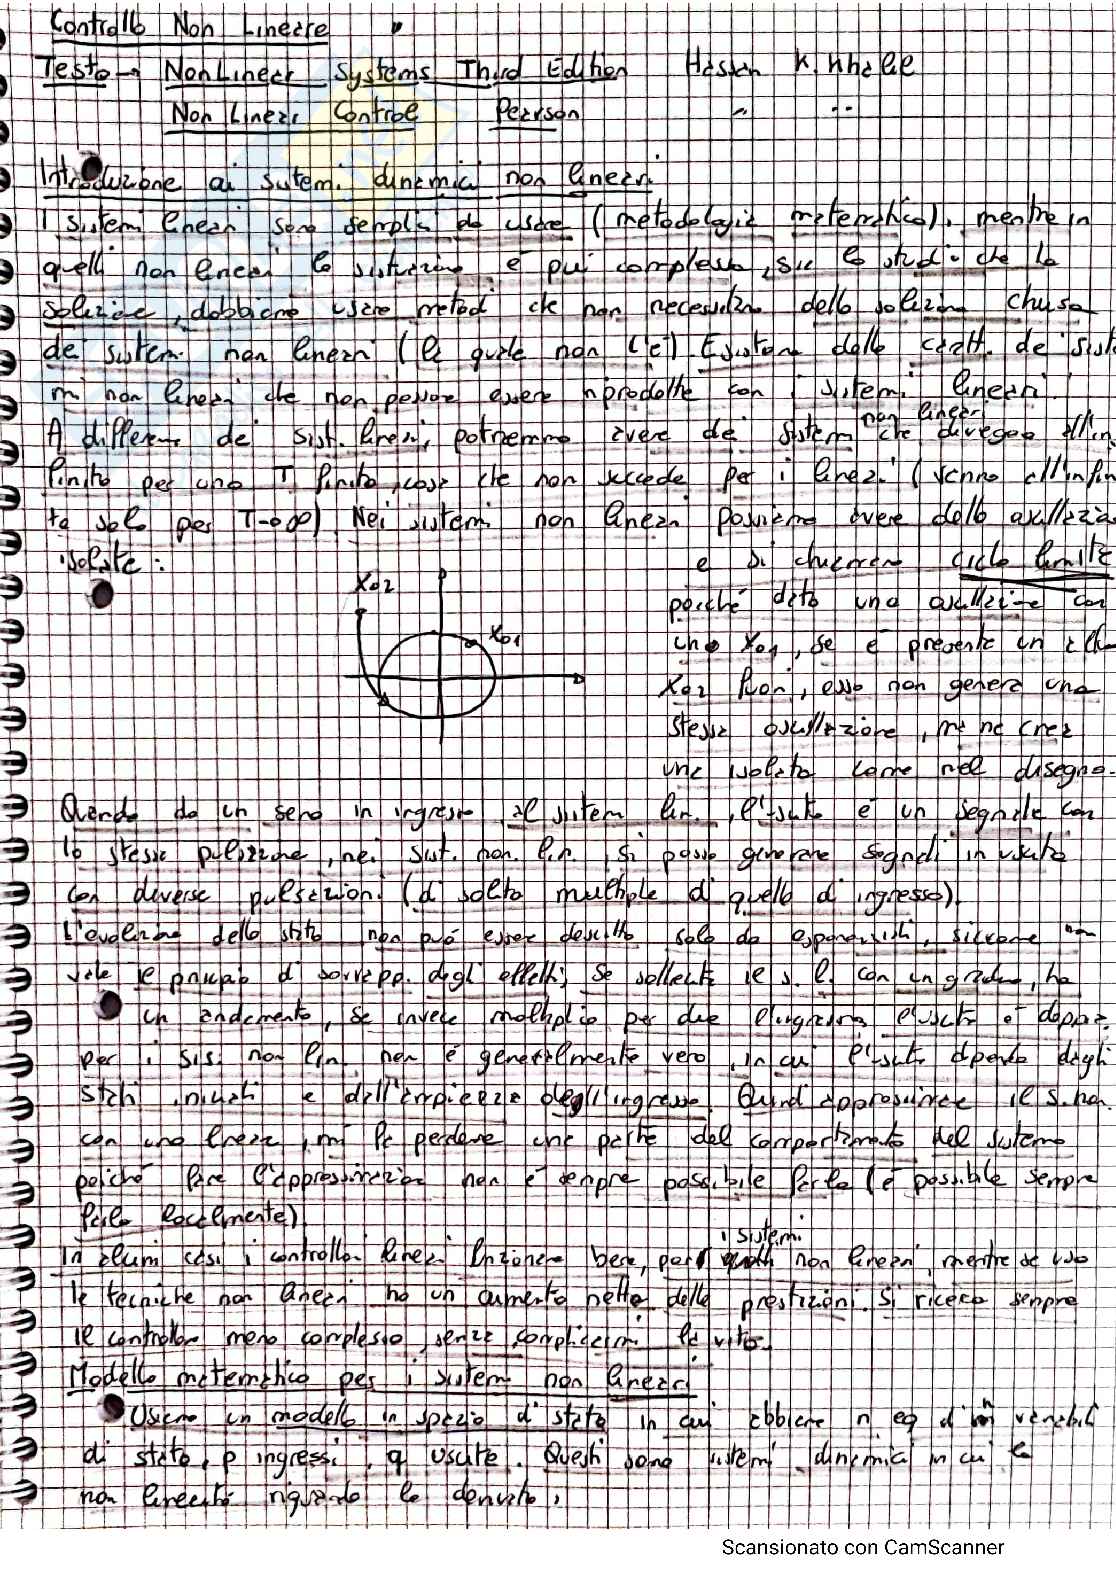 Controllo Non Lineare
Testo → NonLinear Systems Third Edition Hassan K. Khalil
Non Linear Control Pearson " "
Introduzione ai sistemi dinamici non lineari
I sistemi lineari sono semplici da usare (metodologia matematica), mentre in
quelli non lineari la situazione è più complessa, sia lo studio che la
soluzione, dobbiamo usare metodi che non necessitano della soluzione chiusa
dei sistemi non lineari (la quale non c'è) Esistono delle caratt. dei siste
mi non lineari che non possono essere riprodotte con i sistemi lineari.
non lineari
A differenza dei sist. lineari, potremmo avere dei sistemi che divergono all'in
finito per uno T finito, cosa che non succede per i lineari (vanno all'infini
to solo per T→∞) Nei sistemi non lineari possiamo avere delle oscillazioni
isolate:
e si chiamano ciclo limite
X02
poiché data una oscillazione con
X01
uno X01, se è presente un
X02 fuori, esso non genera una
stessa oscillazione, ma ne crea
una isolata come nel disegno.
Quando do un seno in ingresso al sistem lin., l'uscita è un segnale con
la stessa pulsazione, nei sist. non lin. si posso generare segnali in uscita
con diverse pulsazioni (di solito multiple di quella di ingresso).
L'evoluzione dello stato non può essere descritta solo da esponenziali, siccome non
vale il principio di sovrapp. degli effetti; Se sollecito il s. l. con un gradino, ho
un andamento, se invece moltiplico per due l'ingresso l'uscita è doppia,
per i sis. non lin. non è generalmente vero, in cui l'uscita dipende dagli
stati iniziali e dall'ampiezza degli ingresso. Quindi approssimare il s. non
con uno lineare, mi fa perdere una parte del comportamento del sistema
poiché fare l'approssimazione non è sempre possibile farla (è possibile sempre
farlo localmente)
i sistemi
In alcuni casi i controllori lineari funzionano bene, per non lineari, mentre se uso
le tecniche non lineari ho un aumento netto delle prestazioni. Si ricerca sempre
il controllore meno complesso, senza complicarmi la vita.
Modello matematico per i sistemi non lineari
Usiamo un modello in spazio di stato in cui abbiamo n eq di variabili
di stato, p ingressi, q uscite. Questi sono sistemi dinamici in cui la
non linearità riguarda la derivata,
Scansionato con CamScanner